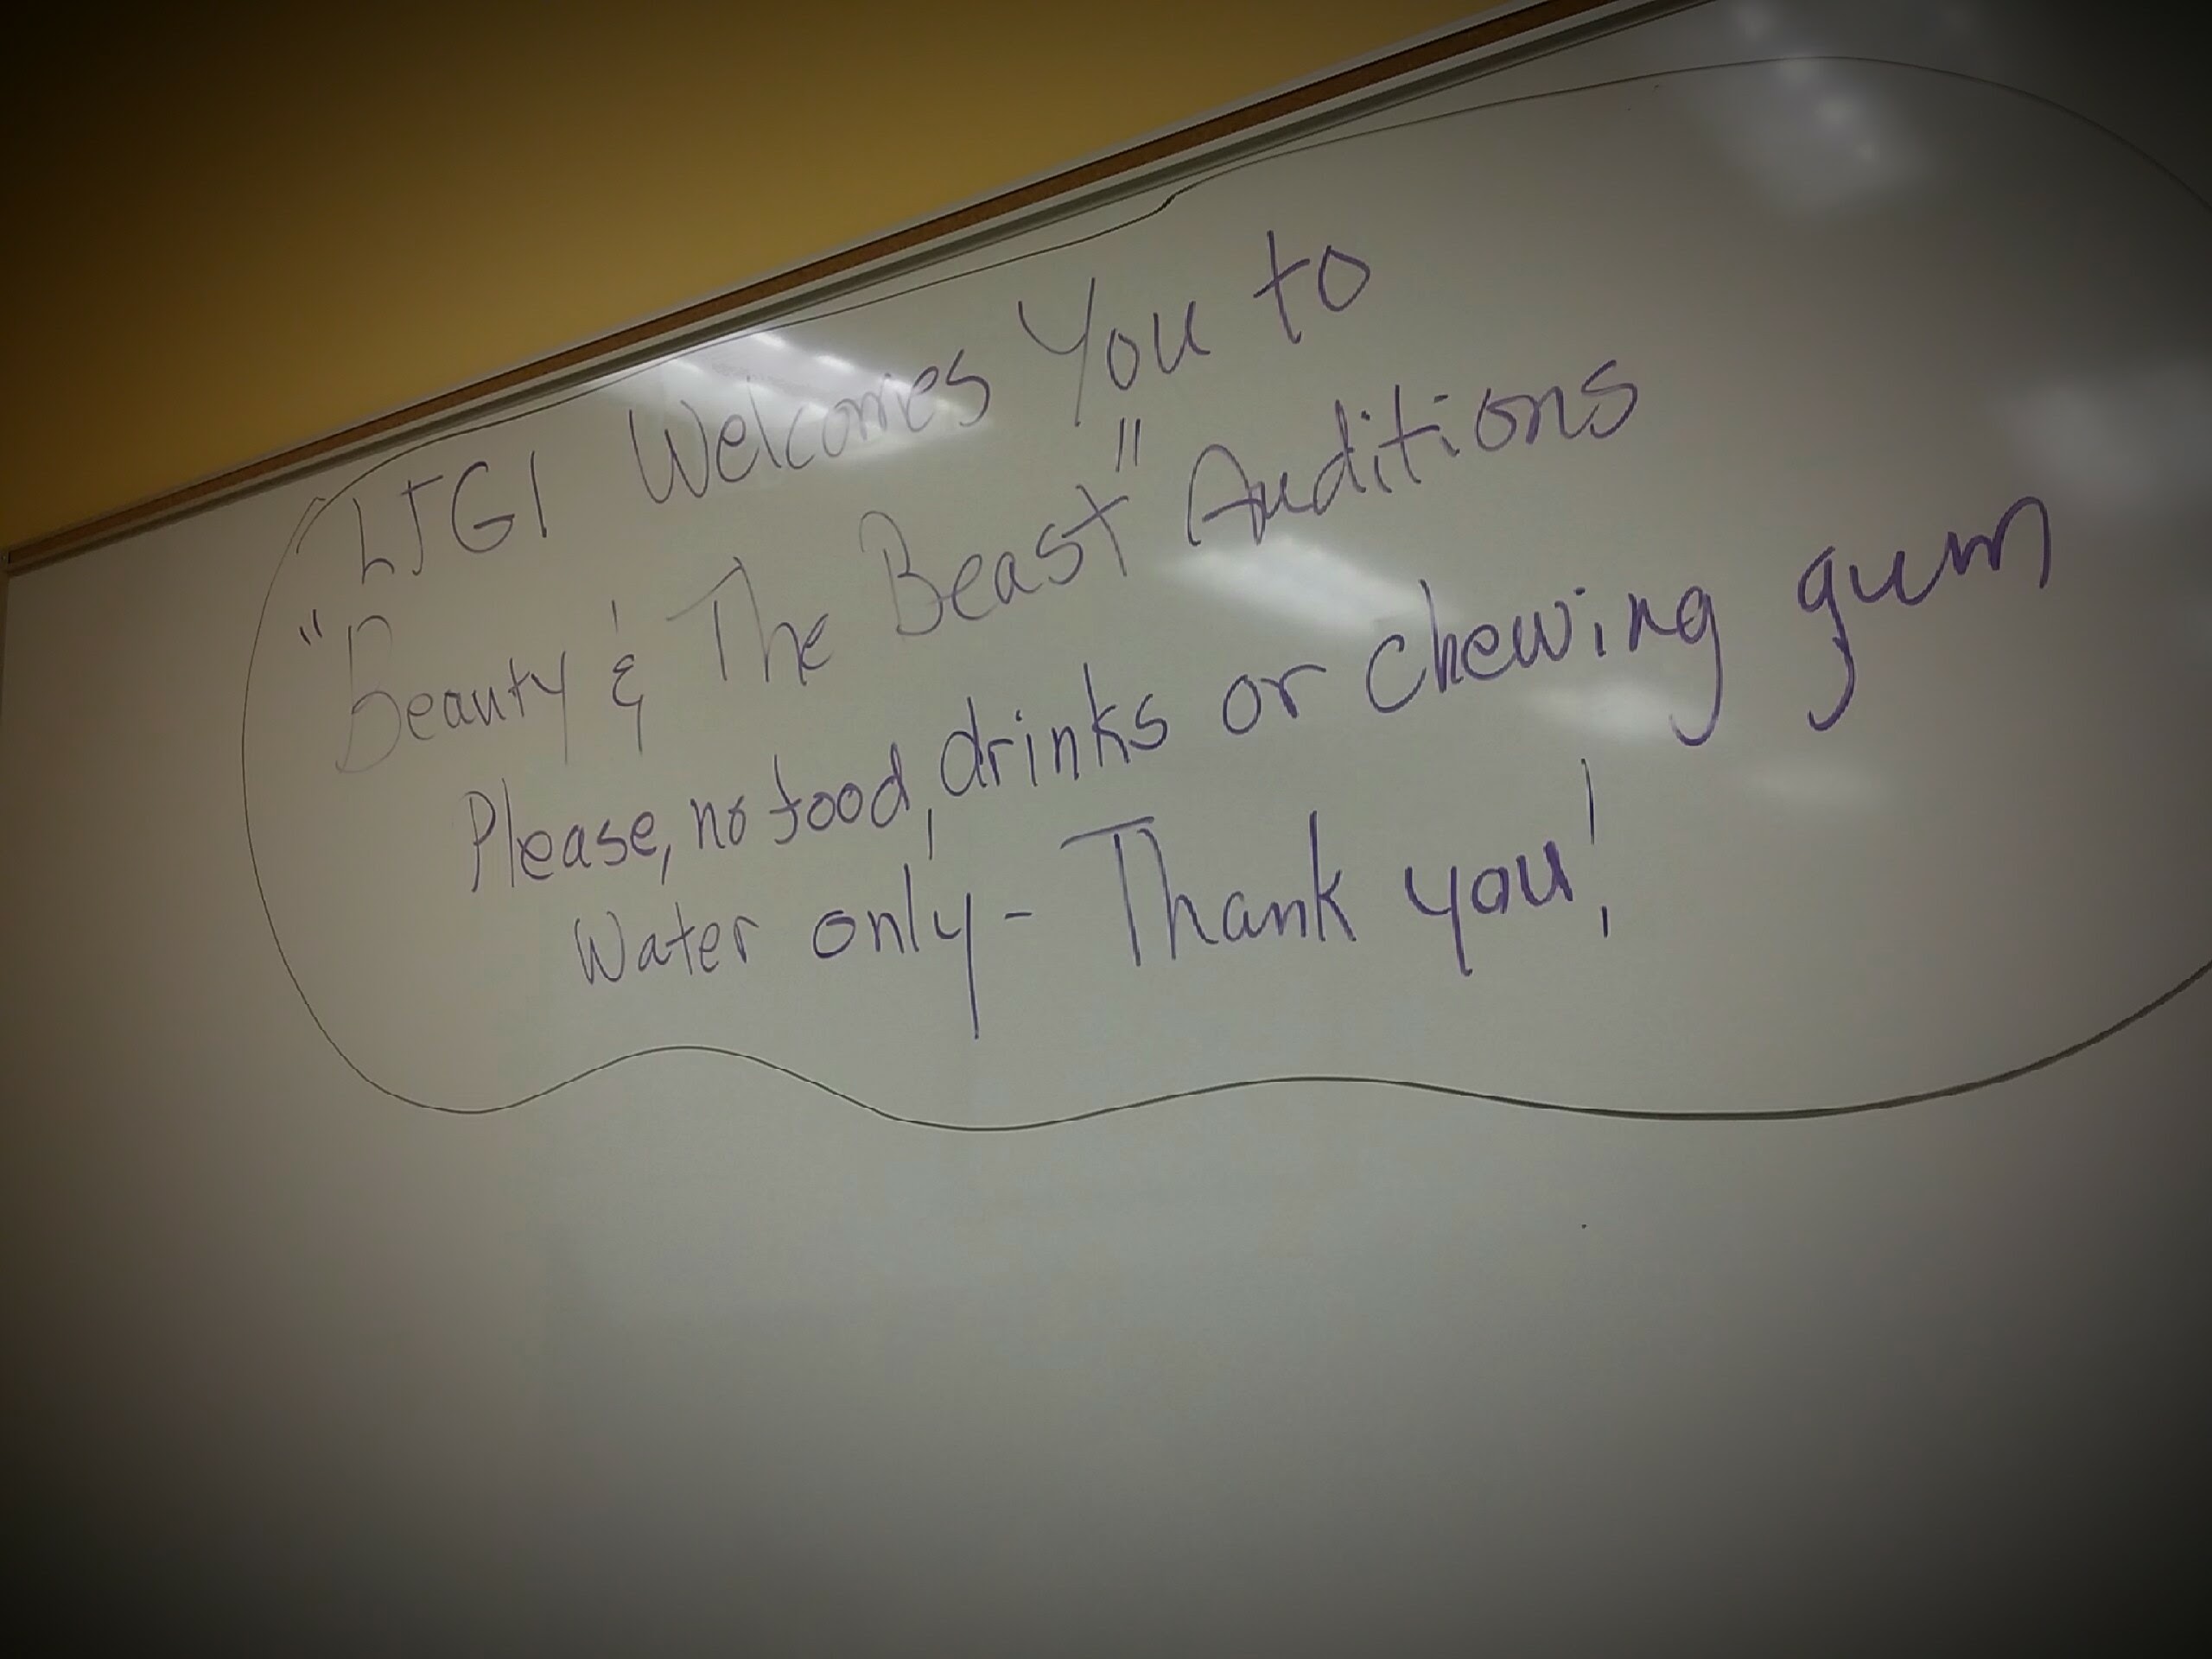 LJGI Welcomes You to
"Beauty & The Beast" Auditions
Please, no food, drinks or chewing gum
Water only - Thank you!